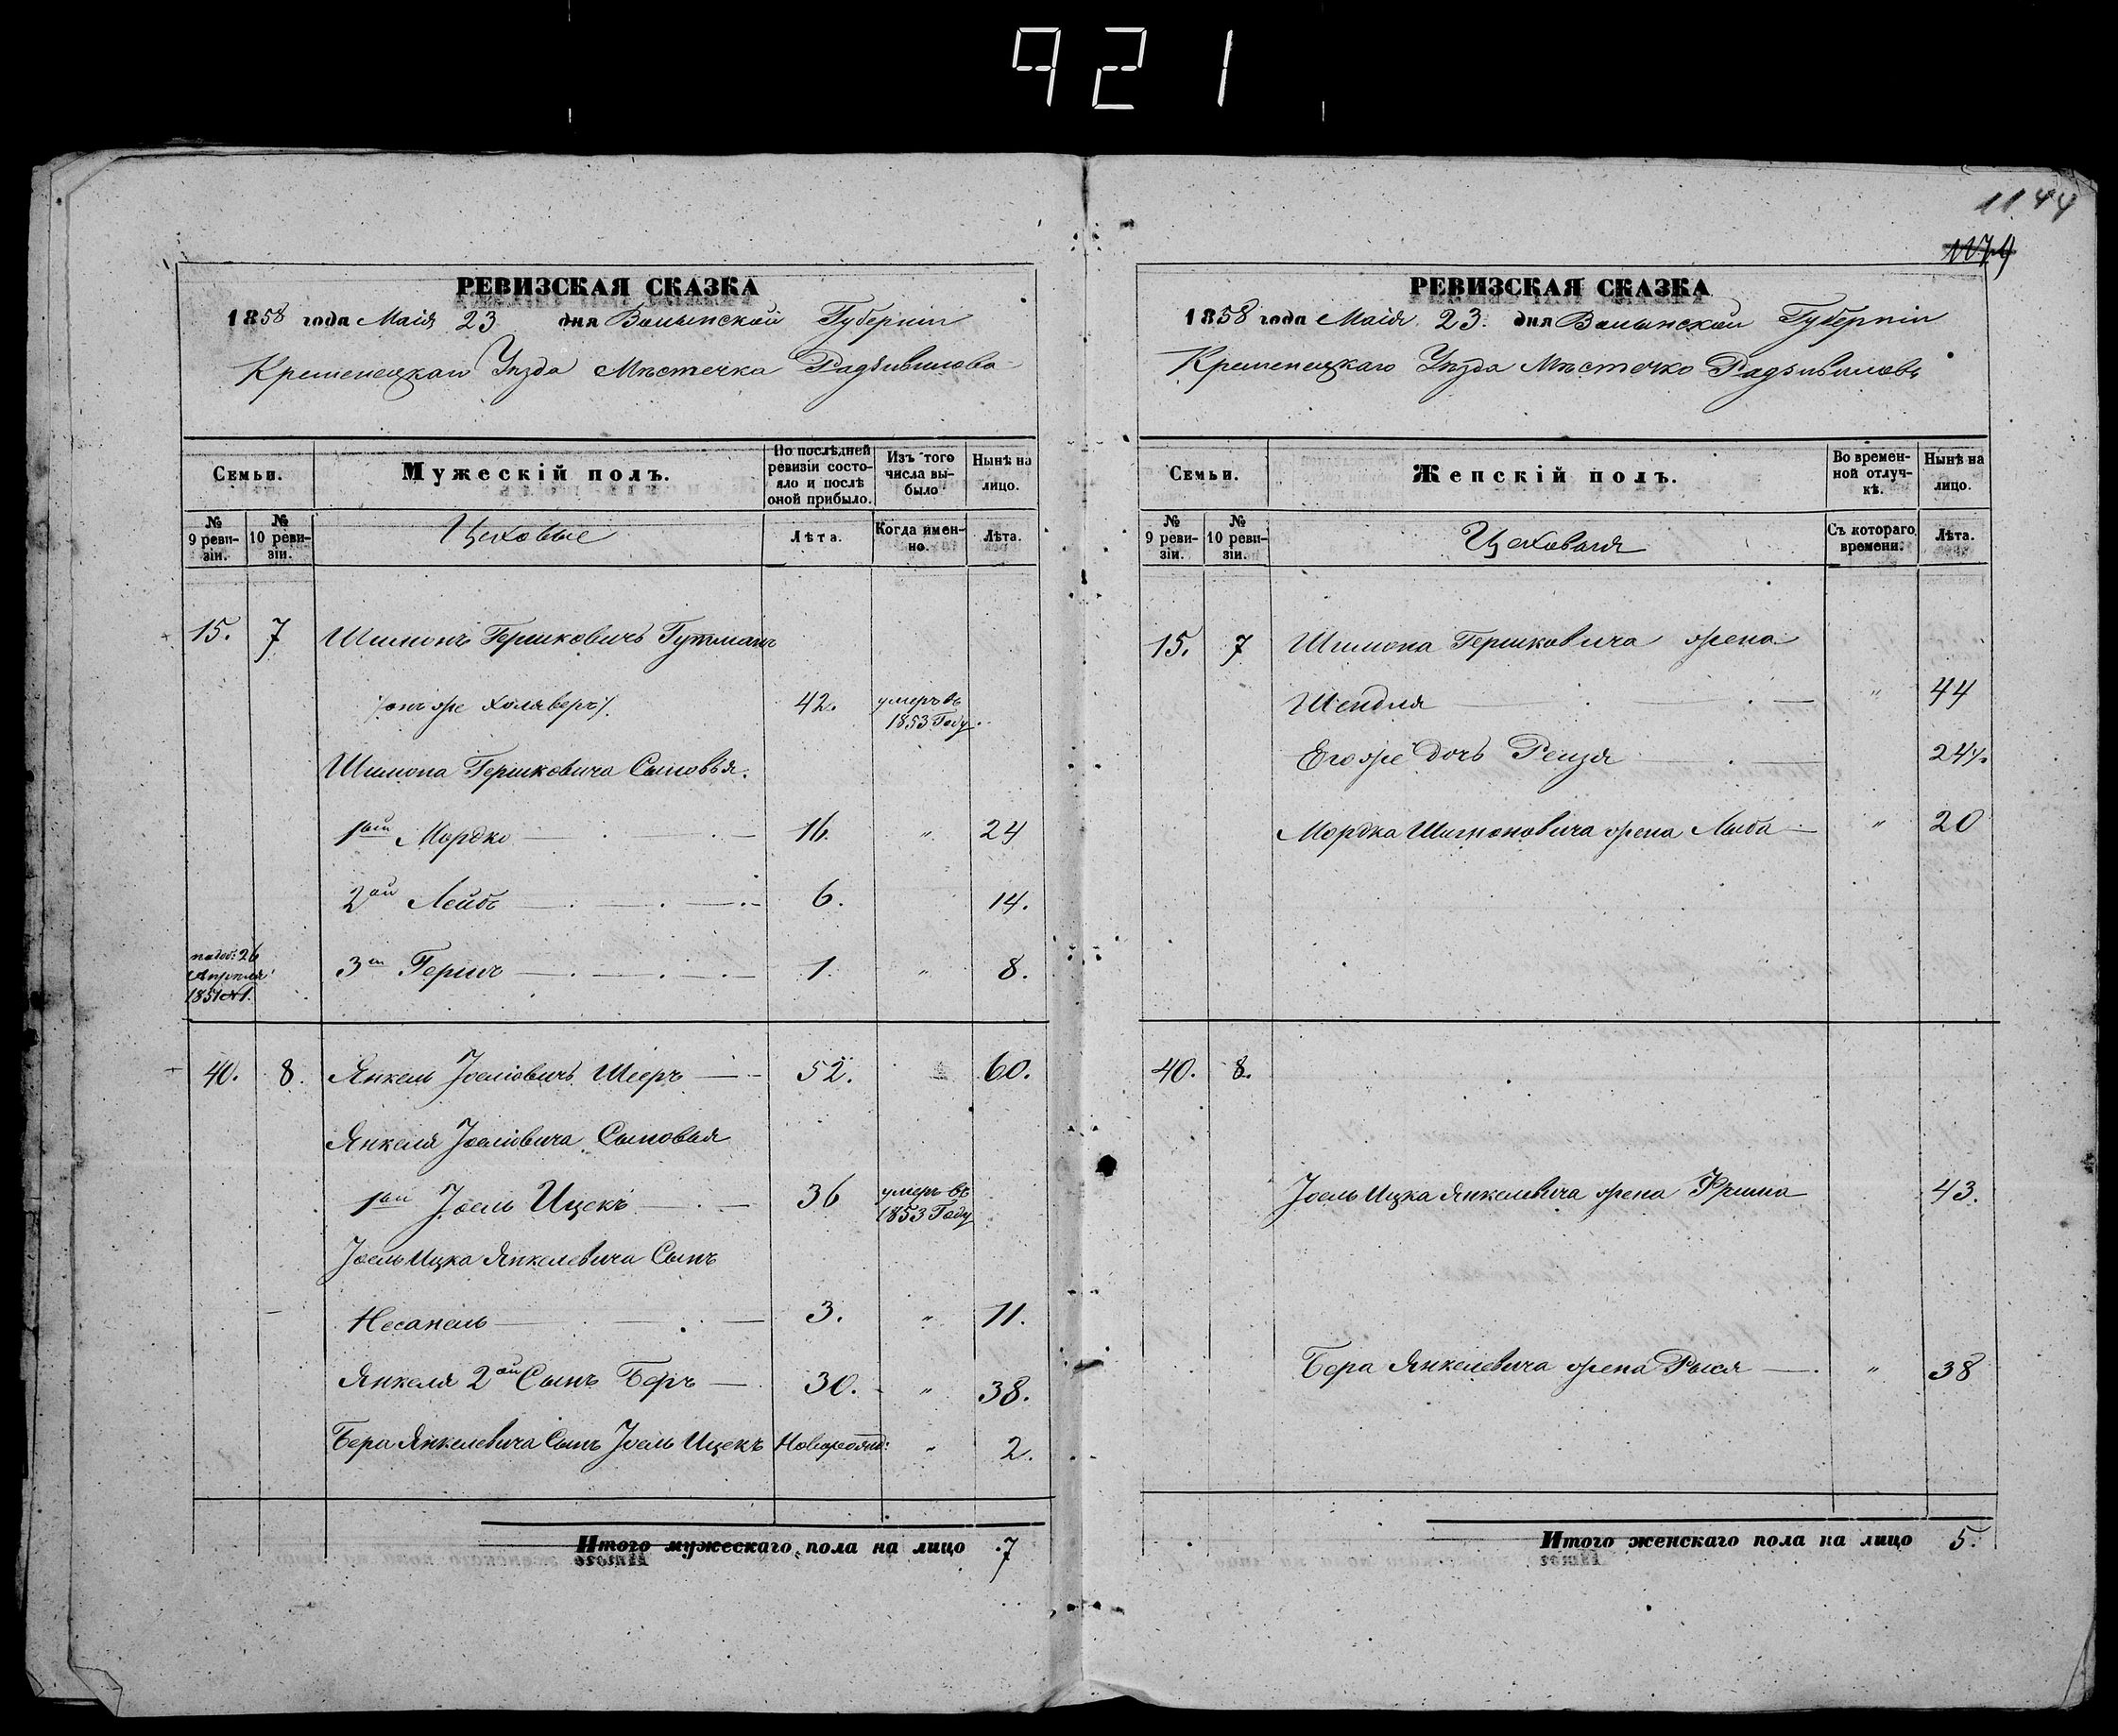 921
1144
1179
РЕВИЗСКАЯ СКАЗКА
1858 года Маія 23 дня Волынской Губерніи
Кременецкаго Уѣзда Мѣстечка Радзивилова
Семьи.
Мужескій полъ.
По послѣдней ревизіи состояло и послѣ оной прибыло.
Изъ того числа выбыло
Нынѣ на лицо.
№ 9 ревизіи.
№ 10 ревизіи.
Цеховые
Лѣта.
Когда именно.
Лѣта.
15. 7 Шимонъ Гершковичъ Гутманъ
/онъ же Холяверъ/. 42. умеръ въ 1853 Году.
Шимона Гершковича Сыновья.
1ый Мордко 16. " 24
2ой Лейбъ 6. 14.
26 Апреля 1851 №1. 3й Гершъ 1. " 8.
40. 8. Янкель Іосіовичъ Шееръ 52. 60.
Янкеля Іосіовича Сыновья
1ый Іоель Ицекъ 36 умеръ въ 1853 Году
Іоель Ицка Янкелевича Сынъ
Несанель 3. " 11.
Янкеля 2ой Сынъ Беръ 30. " 38.
Бера Янкелевича Сынъ Іоель Ицекъ Новорожд: " 2.
Итого мужескаго пола на лицо 7
РЕВИЗСКАЯ СКАЗКА
1858 года Маія 23. дня Волынской Губерніи
Кременецкаго Уѣзда Мѣстечко Радзивиловъ
Семьи.
Женскій полъ.
Во временной отлучкѣ.
Нынѣ на лицо.
№ 9 ревизіи.
№ 10 ревизіи.
Цеховыя
Съ котораго времени.
Лѣта.
15. 7 Шимона Гершковича жена
Шендля " 44
Его же дочь Рейзя 24
Мордка Шимоновича жена Лыба " 20
40. 8.
Іоель Ицка Янкелевича жена Фрима 43.
Бера Янкелевича жена Рыся " 38
Итого женскаго пола на лицо 5.